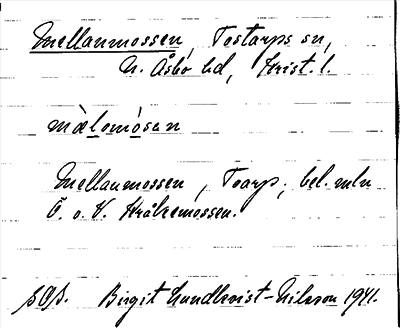 Mellanmossen, Tostarps sn,
N. Åsbo hd, Krist. l.
mæ̀lomósen
Mellanmossen, Toarp, bel. mln
Ö. o. V. Kråkemossen.
SOA. Birgit Lundkvist-Nilsson 1941.